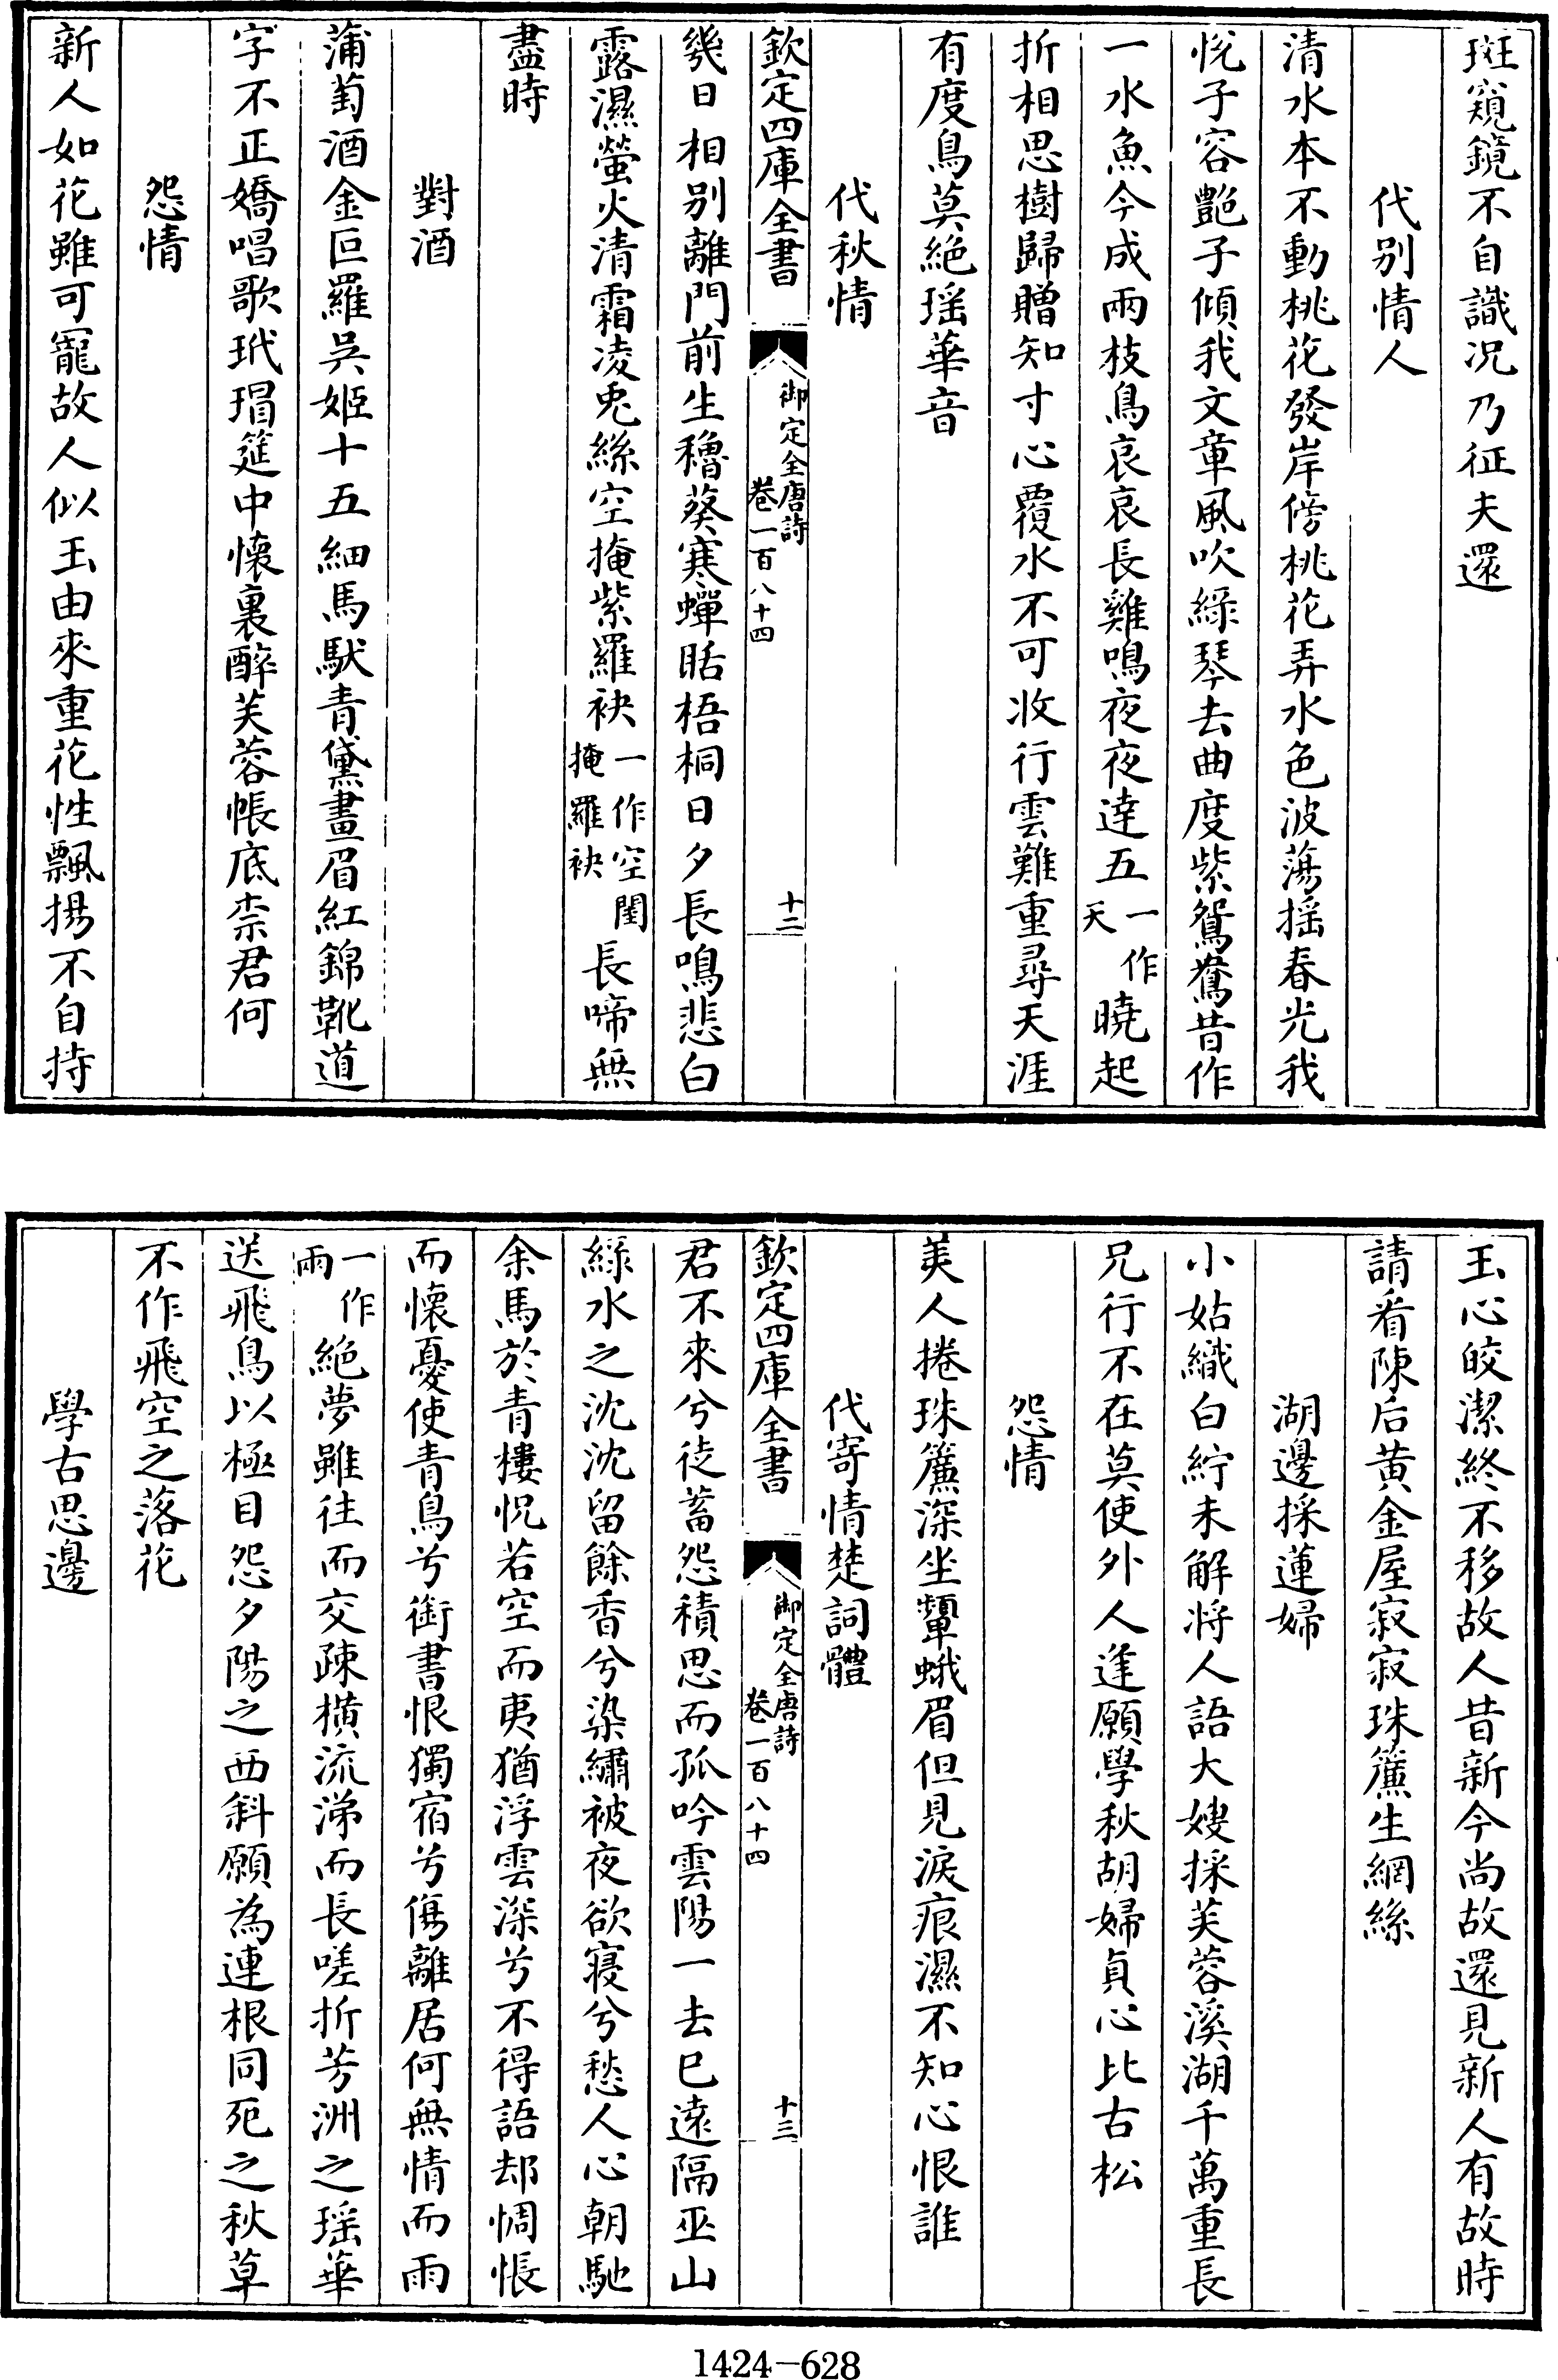 斑窺鏡不自識况乃征夫還
代别情人
清水本不動桃花發岸傍桃花弄水色波蕩揺春光我
悅子容艶子傾我文章風吹緑琴去曲度紫鴛鴦昔作
一水魚今成兩枝鳥哀哀長雞鳴夜夜達五一作天曉起
折相思樹歸贈知寸心覆水不可收行雲難重尋天涯
有度鳥莫絶瑶華音
代秋情
欽定四庫全書
御定全唐詩
卷一百八十四
十二
幾日相别離門前生穭葵寒蟬聒梧桐日夕長鳴悲白
露濕螢火清霜凌兎絲空掩紫羅袂一作空閨掩羅袂長啼無
盡時
對酒
蒲萄酒金叵羅吳姬十五細馬馱青黛畫眉紅錦靴道
字不正嬌唱歌玳瑁筵中懷裏醉芙蓉帳底柰君何
怨情
新人如花雖可寵故人似玉由來重花性飄揚不自持
玉心皎潔終不移故人昔新今尚故還見新人有故時
請看陳后黄金屋寂寂珠簾生網絲
湖邊採蓮婦
小姑織白紵未解将人語大嫂採芙蓉溪湖千萬重長
兄行不在莫使外人逢願學秋胡婦貞心比古松
怨情
美人捲珠簾深坐顰蛾眉但見淚痕濕不知心恨誰
代寄情楚詞體
欽定四庫全書
御定全唐詩
卷一百八十四
十三
君不來兮徒蓄怨積思而孤吟雲陽一去已遠隔巫山
緑水之沈沈留餘香兮染繡被夜欲寝兮愁人心朝馳
余馬於青樓怳若空而夷猶浮雲深兮不得語却惆悵
而懷憂使青鳥兮銜書恨獨宿兮傷離居何無情而雨
一作兩絶夢雖往而交疎横流涕而長嗟折芳洲之瑶華
送飛鳥以極目怨夕陽之西斜願為連根同死之秋草
不作飛空之落花
學古思邊
1424—628